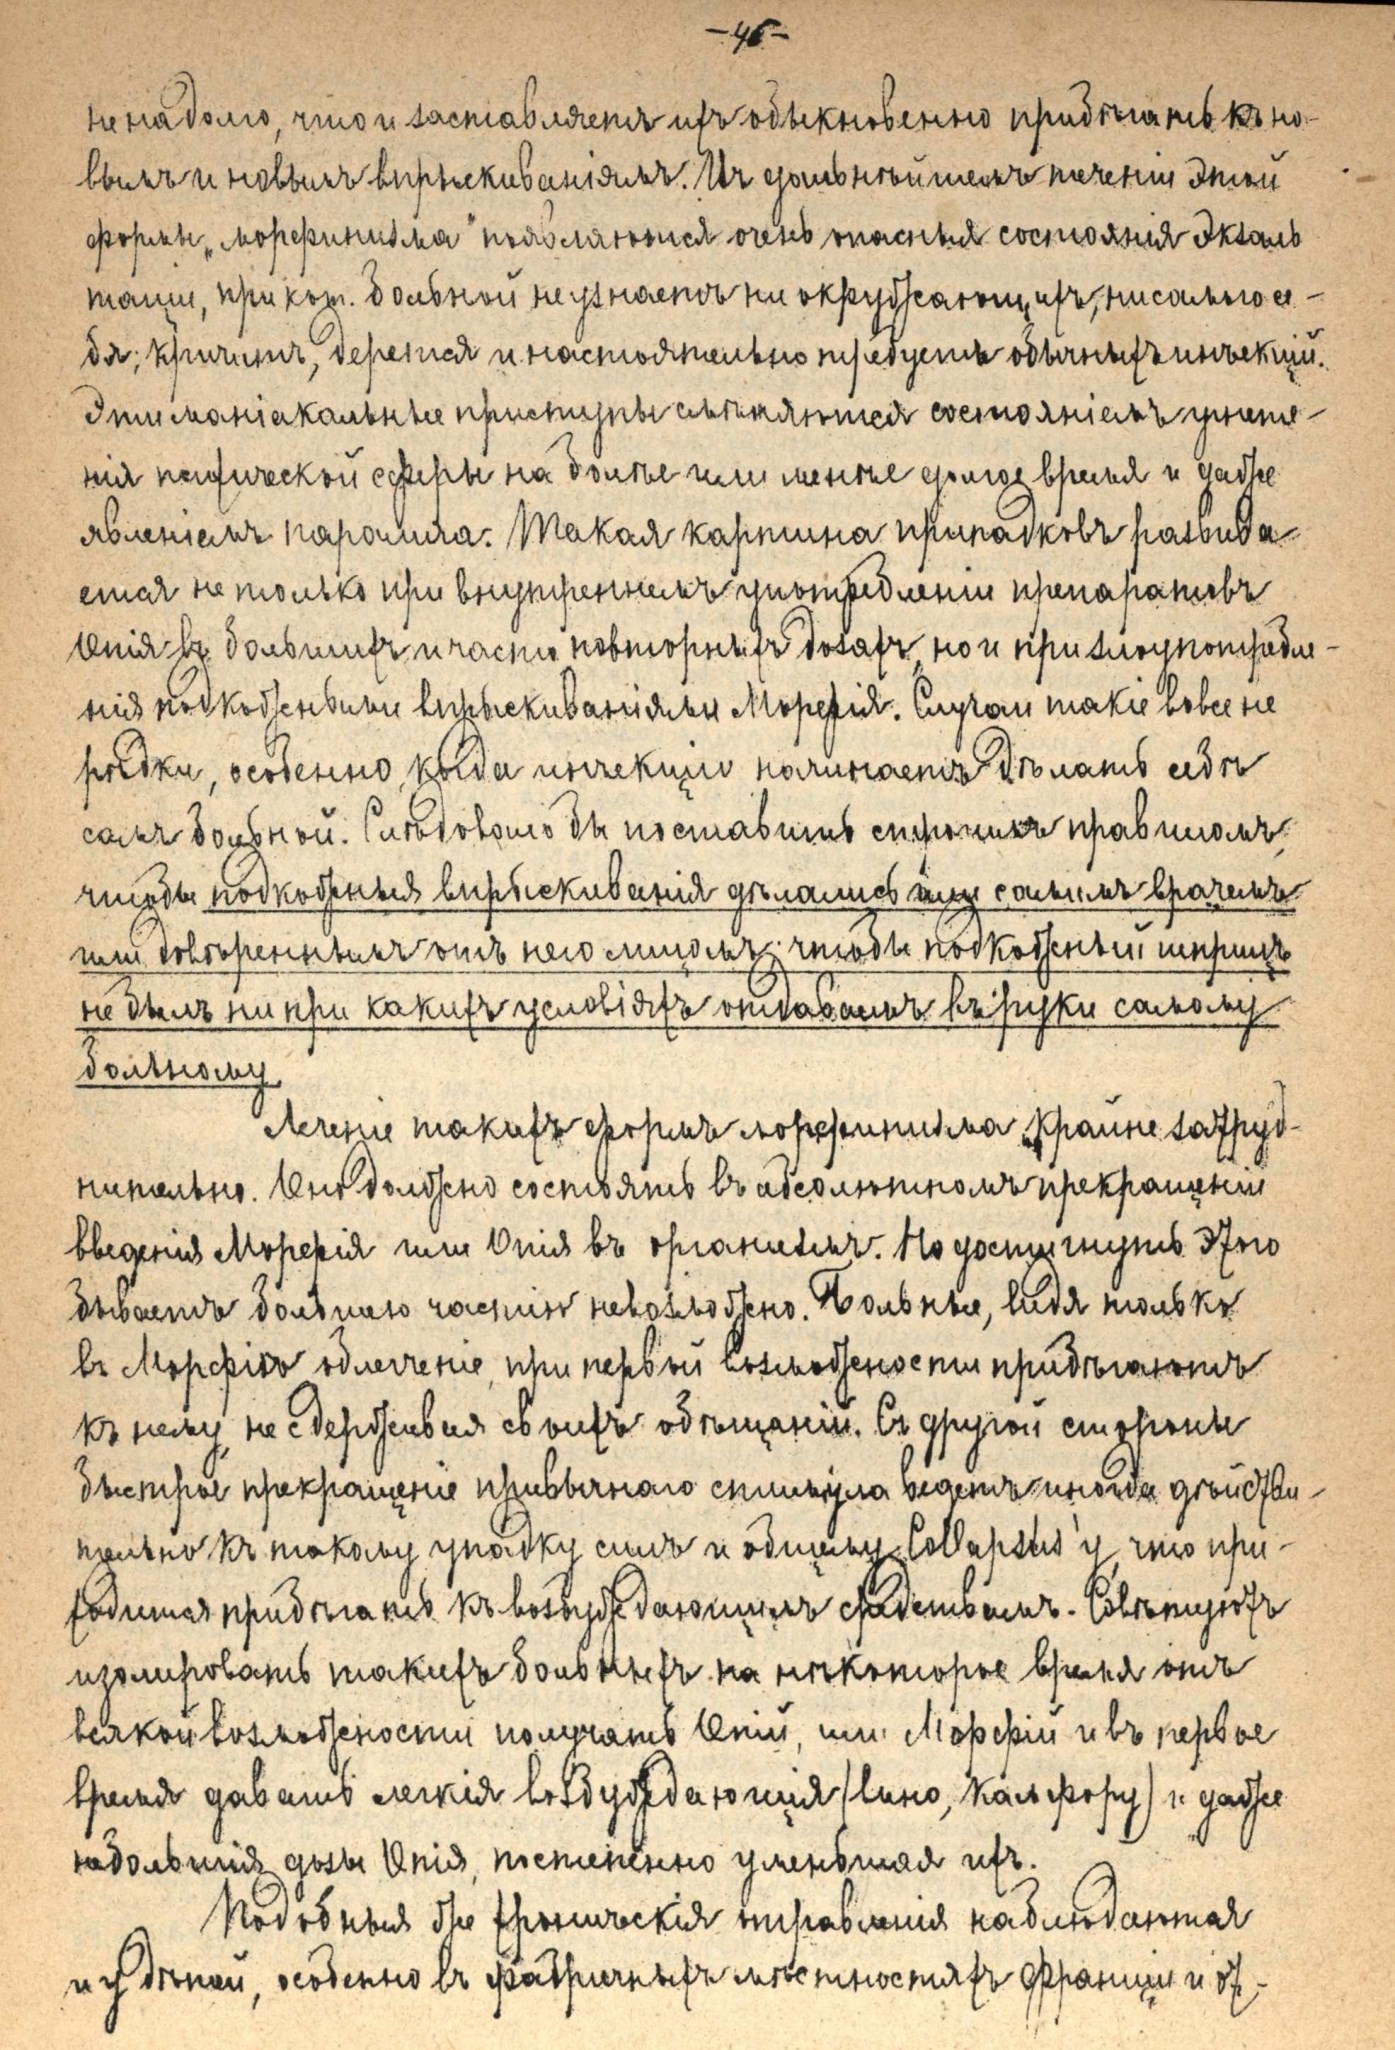 -46-
не надолго, что и заставляетъ ихъ обыкновенно прибѣгать къ но-
вымъ и новымъ впрыскиваніямъ. Въ дальнѣйшемъ теченіи этой
формы „морфинизма" появляются очень опасныя состоянія экзаль
таціи, при кот. больной не узнаетъ ни окружающихъ, ни самого се-
бя; кричитъ, дерется и настоятельно требуетъ обычныхъ инъекцій.
Эти маніакальные приступы смѣняются состояніемъ угнете-
нія психической сферы на болѣе или менѣе долгое время и даже
явленіемъ паралича. Такая картина припадковъ развива
ется не только при внутреннемъ употребленіи препаратовъ
Опія въ большихъ и часто повторныхъ дозахъ, но и при злоупотребле-
нія подкожными впрыскиваніями Морфія. Случаи такіе вовсе не
рѣдки, особенно, когда инъекцію начинаетъ дѣлать себѣ
самъ больной. Слѣдовало бы поставить строгимъ правиломъ,
чтобы подкожныя впрыскиванія дѣлались или самимъ врачемъ
или довѣреннымъ отъ него лицомъ; чтобы подкожный шприцъ
не былъ ни при какихъ условіяхъ отдаваемъ въ руки самому
больному
Леченіе такихъ формъ морфинизма крайне затруд-
нительно. Оно должно состоять въ абсолютномъ прекращеніи
введенія Морфія или Опія въ организмъ. Но достигнуть этого
бываетъ большею частію невозможно. Больные, видя только
въ Морфіѣ облегченіе, при первой возможности прибѣгаютъ
къ нему, не сдерживая своихъ обѣщаній. Съ другой стороны
быстрое прекращеніе привычнаго стимула ведетъ иногда дѣйстви-
тельно къ такому упадку силъ и общему Collapsus'у, что при-
ходится прибѣгать къ возбуждающимъ средствамъ. Совѣтуютъ
изолировать такихъ больныхъ на нѣкоторое время отъ
всякой возможности получать Опій, или Морфій и въ первое
время давать легкія возбуждающія (вино, камфору) и даже
небольшія дозы Опія, постепенно уменьшая ихъ.
Подобныя же хроническія отравленія наблюдаются
и у дѣтей, особенно въ фабричныхъ мѣстностяхъ Франціи и от-